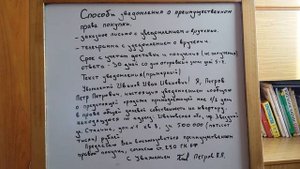 Способы уведомления о преимущественном
праве покупки.
- заказное письмо с уведомлением о вручении.
- телеграмма с уведомлением о вручении.
Срок с учетом доставки и
ответа - 30 дней со дня отправки
Текст уведомления (примерный)
Уважаемый Иванов Иван Иванович! Я, Петров
Петр Петрович, настоящим уведомлением сообщаю
о предстоящей продаже принадлежащей мне 1/2 доли
в праве общей долевой собственности на квартиру,
находящуюся по адресу
у. Сталина, дом 1 кв 3, за 500 000 (пятьсот
тысяч) рублей.
Предлагаю Вам воспользоваться преимущественным
правом покупки, согласно ст. 250 ГК РФ
С Уважением Петров П.П.